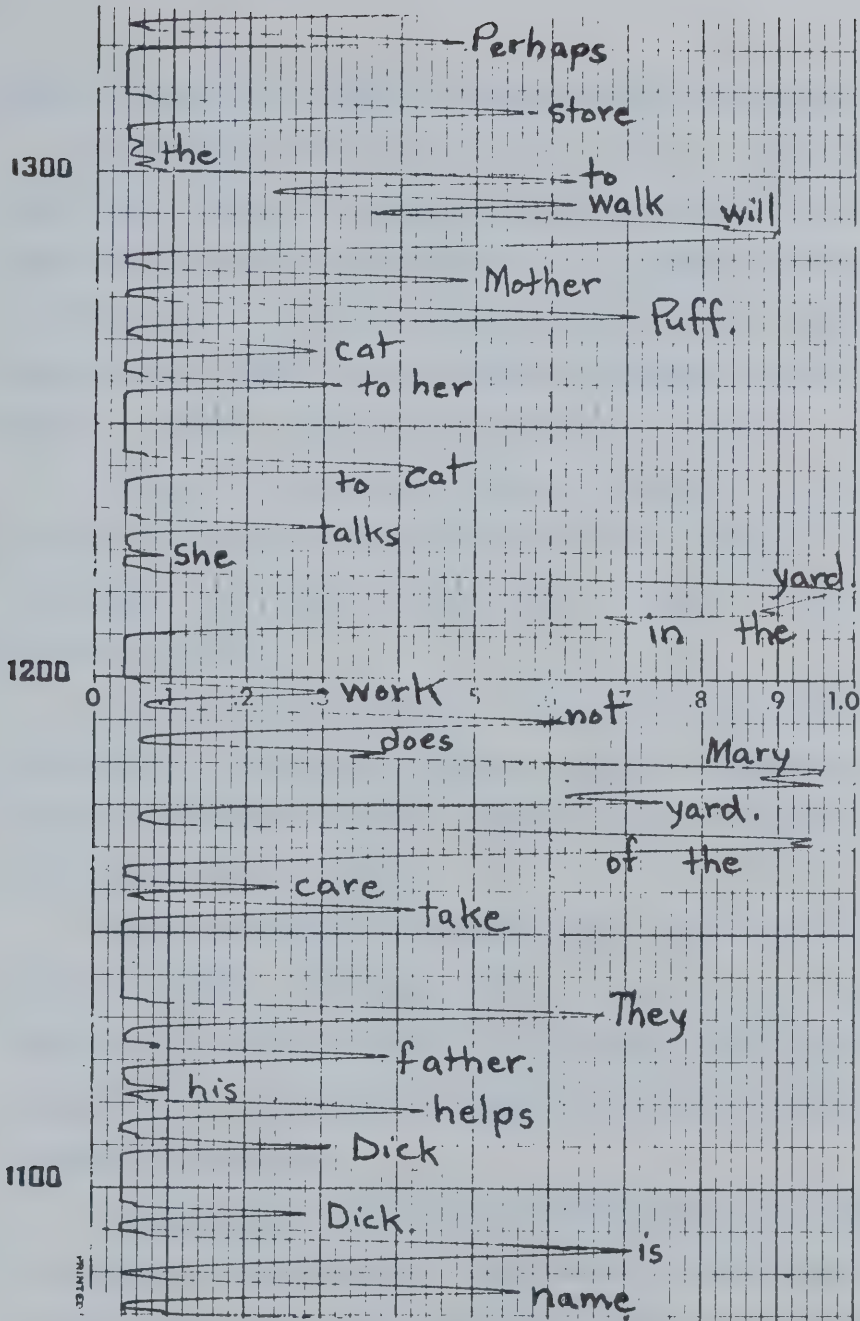 Perhaps
store
the
1300
to
walk will
Mother
Puff.
cat
to her
to cat
talks
She
yard.
in the
1200
0 .1 .2 .3 .4 .5 .6 .7 .8 .9 1.0
work
not
does
Mary
yard.
of the
care
take
They
father.
his
helps
Dick
1100
Dick.
is
PRINTED
name